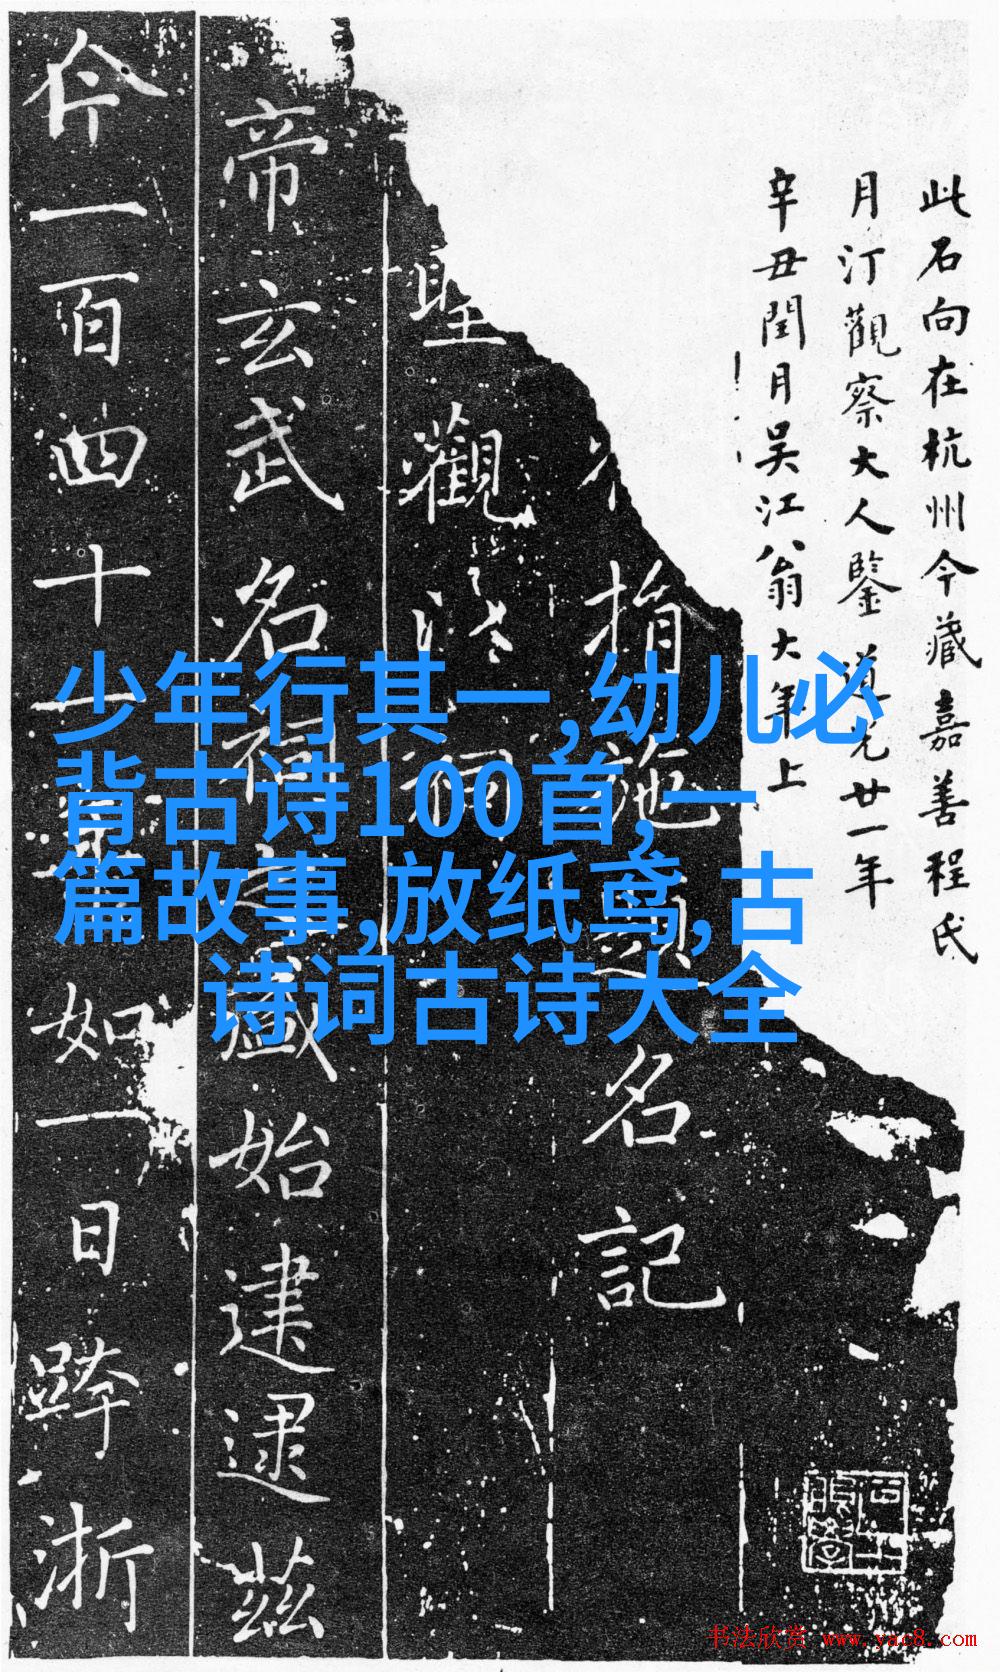 此石向在杭州今藏嘉善程氏
月汀觀察大人鑒道光廿一年
辛丑閏月吳江翁大年上
捐施題名記
聖觀祠
帝玄武名祠之盛始建逮茲
今一百四十一如一日跨浙
少年行其一,幼儿必
背古诗100首,一
篇故事,放纸鸢,古
诗词古诗大全
书法欣赏 www.yac8.com